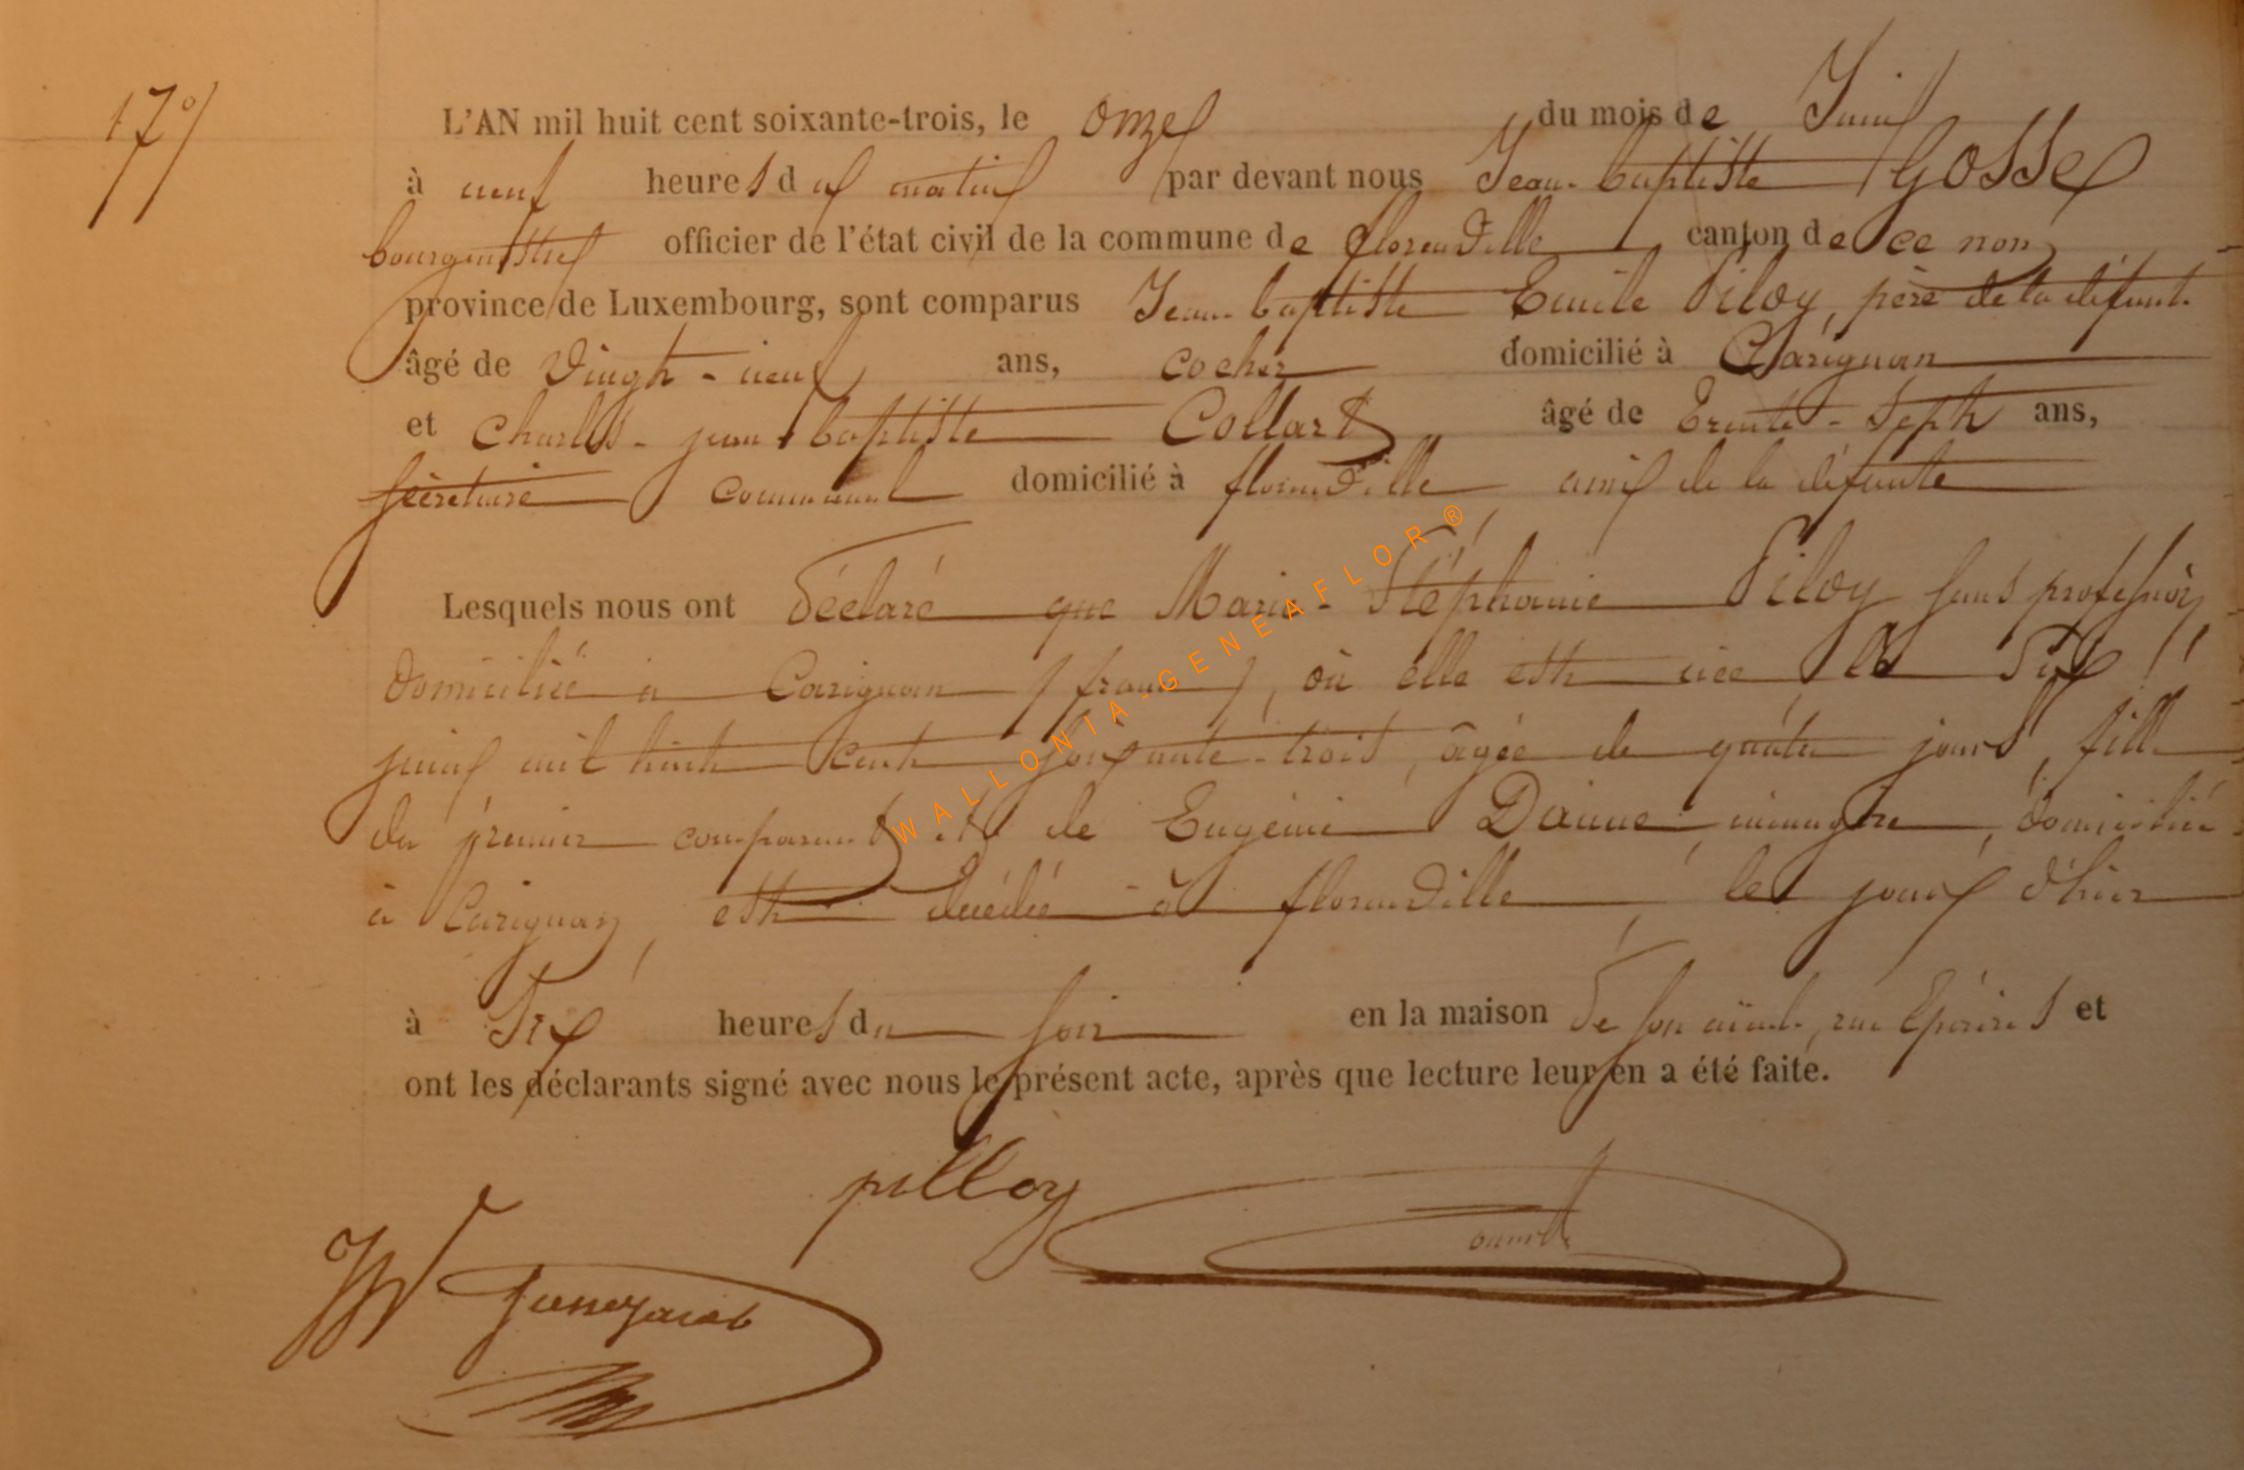 17°/
L'AN mil huit cent soixante-trois, le onze du mois de Juin
à neuf heures du matin par devant nous Jean-baptiste GOSSE
bourgmestre officier de l'état civil de la commune de florenville canton de ce nom
province de Luxembourg, sont comparus Jean-baptiste Emile Piloy, père de la défunte
âgé de vingt-neuf ans, cocher domicilié à Carignan
et Charles-jean-baptiste Collart âgé de trente-sept ans,
secrétaire communal domicilié à florenville ami de la défunte
Lesquels nous ont déclaré que Marie-Stéphanie Piloy sans profession,
domiciliée à Carignan (france), où elle est née le six
juin mil huit cent soixante-trois, âgée de quatre jours, fille
du premier comparant et de Eugénie Dainne, ménagère, domiciliée
à Carignan, est décédée à florenville, le jour d'hier
à six heures du soir en la maison de son aïeule, rue et
ont les déclarants signé avec nous le présent acte, après que lecture leur en a été faite.
pilloy
WALLONIA-GENEAFLOR®